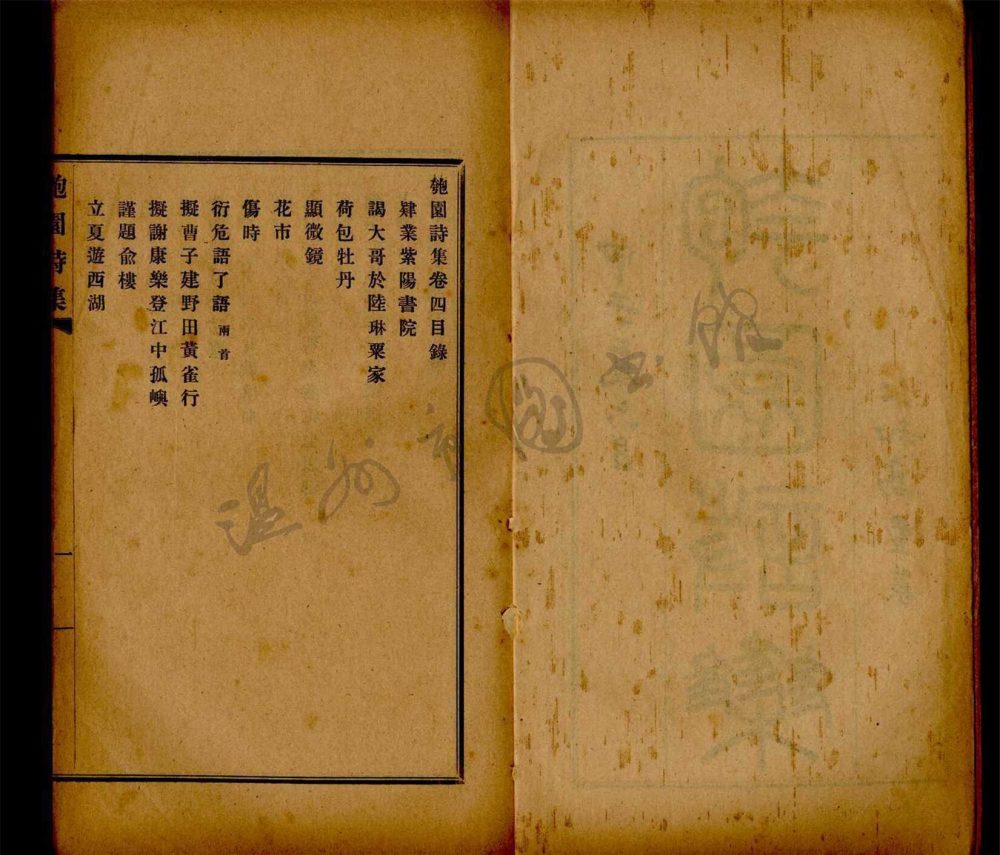 匏園詩集卷四目錄
肄業紫陽書院
謁大哥於陸琳粟家
荷包牡丹
顯微鏡
花市
傷時
衍危語了語兩首
擬曹子建野田黃雀行
擬謝康樂登江中孤嶼
謹題俞樓
立夏遊西湖
匏園詩集
温州市圖书館